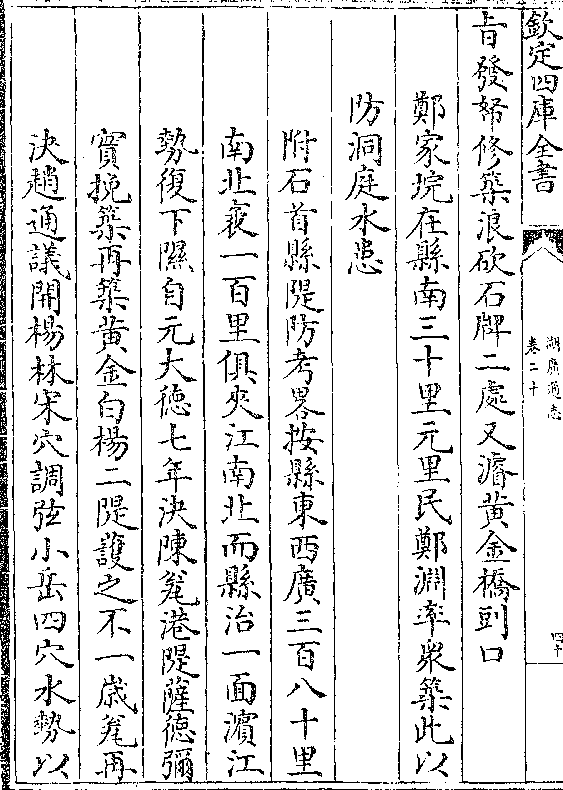 欽定四庫全書
湖廣通志
卷二十
四十
旨發帑修築浪砍石牌二處又濬黄金橋剅口
鄭家垸在縣南三十里元里民鄭淵率衆築此以
防洞庭水患
附石首縣隄防考畧按縣東西廣三百八十里
南北袤一百里俱夾江南北而縣治一面濵江
勢復下隰自元大徳七年決陳瓮港隄薩徳彌
實挽築再築黄金白楊二隄䕶之不一歲瓮再
決趙通議開楊林宋穴調弦小岳四穴水勢以